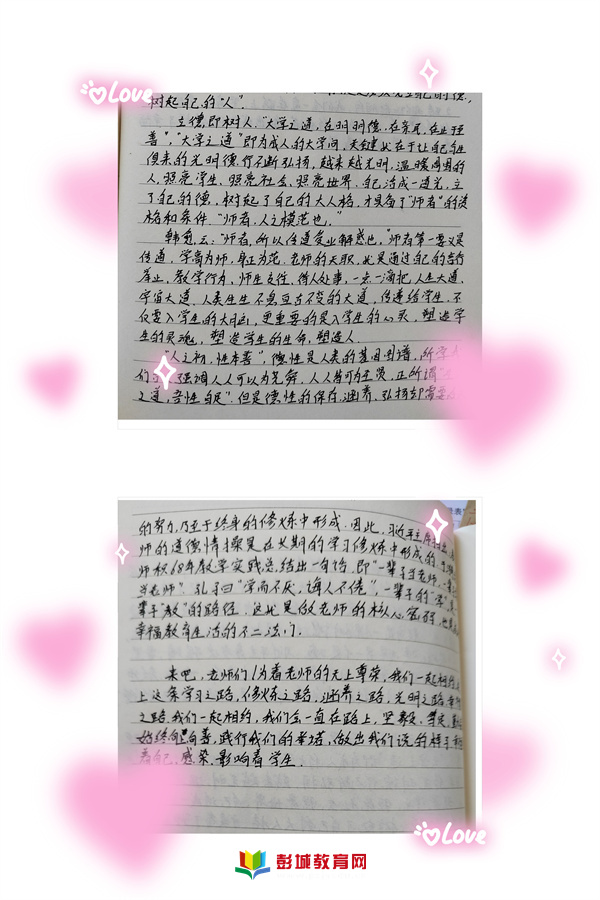 Love
树起自己的“人”.
立德即树人.“大学之道，在明明德，在亲民，在止于至
善”，“大学之道”即为成人的大学问，关键就在于让自己与生
俱来的光明德行不断弘扬，越来越光明，温暖周围的
人，照亮学生，照亮社会，照亮世界.自己活成一道光，立
了自己的德，树起了自己的大人格，才具备了“师者”的资
格和条件.“师者，人之模范也.”
韩愈云：“师者，所以传道受业解惑也.”师者第一要义是
传道，学高为师，身正为范.老师的天职，就是通过自己的言行
举止、教学行为、师生交往、待人处事，一点一滴把人生大道、
宇宙大道、人类生生不息亘古不变的大道，传递给学生，不
仅要入学生的大脑，更重要的是入学生的心灵，塑造学
生的灵魂，塑造学生的生命，塑造人.
“人之初，性本善”，德性是人类的基因图谱，所
们 强调人人可以为尧舜，人人皆可为圣贤，正所谓“
之道，吾性自足”.但是德性的保存、涵养、弘扬却需要
的努力，乃至于终身的修炼中形成.因此，
师的道德情操是在长期的学习修炼中形成的.
师积68年教学实践总结出一句话，即“一辈子当老师，一
当老师”.孔子曰“学而不厌，诲人不倦”，一辈子的“学”，
辈子“教”的路径，这就是做老师的核心密码，也
幸福教育生活的不二法门.
来吧，老师们！为着老师的无上尊荣，我们一起相约
上这条学习之路，修炼之路，涵养之路，光明之路，
之路，我们一起相约，我们会一直在路上，坚毅，
始终向善，践行我们的幸福，做出我们说的样子，
着自己，感染、影响着学生.
Love
彭城教育网